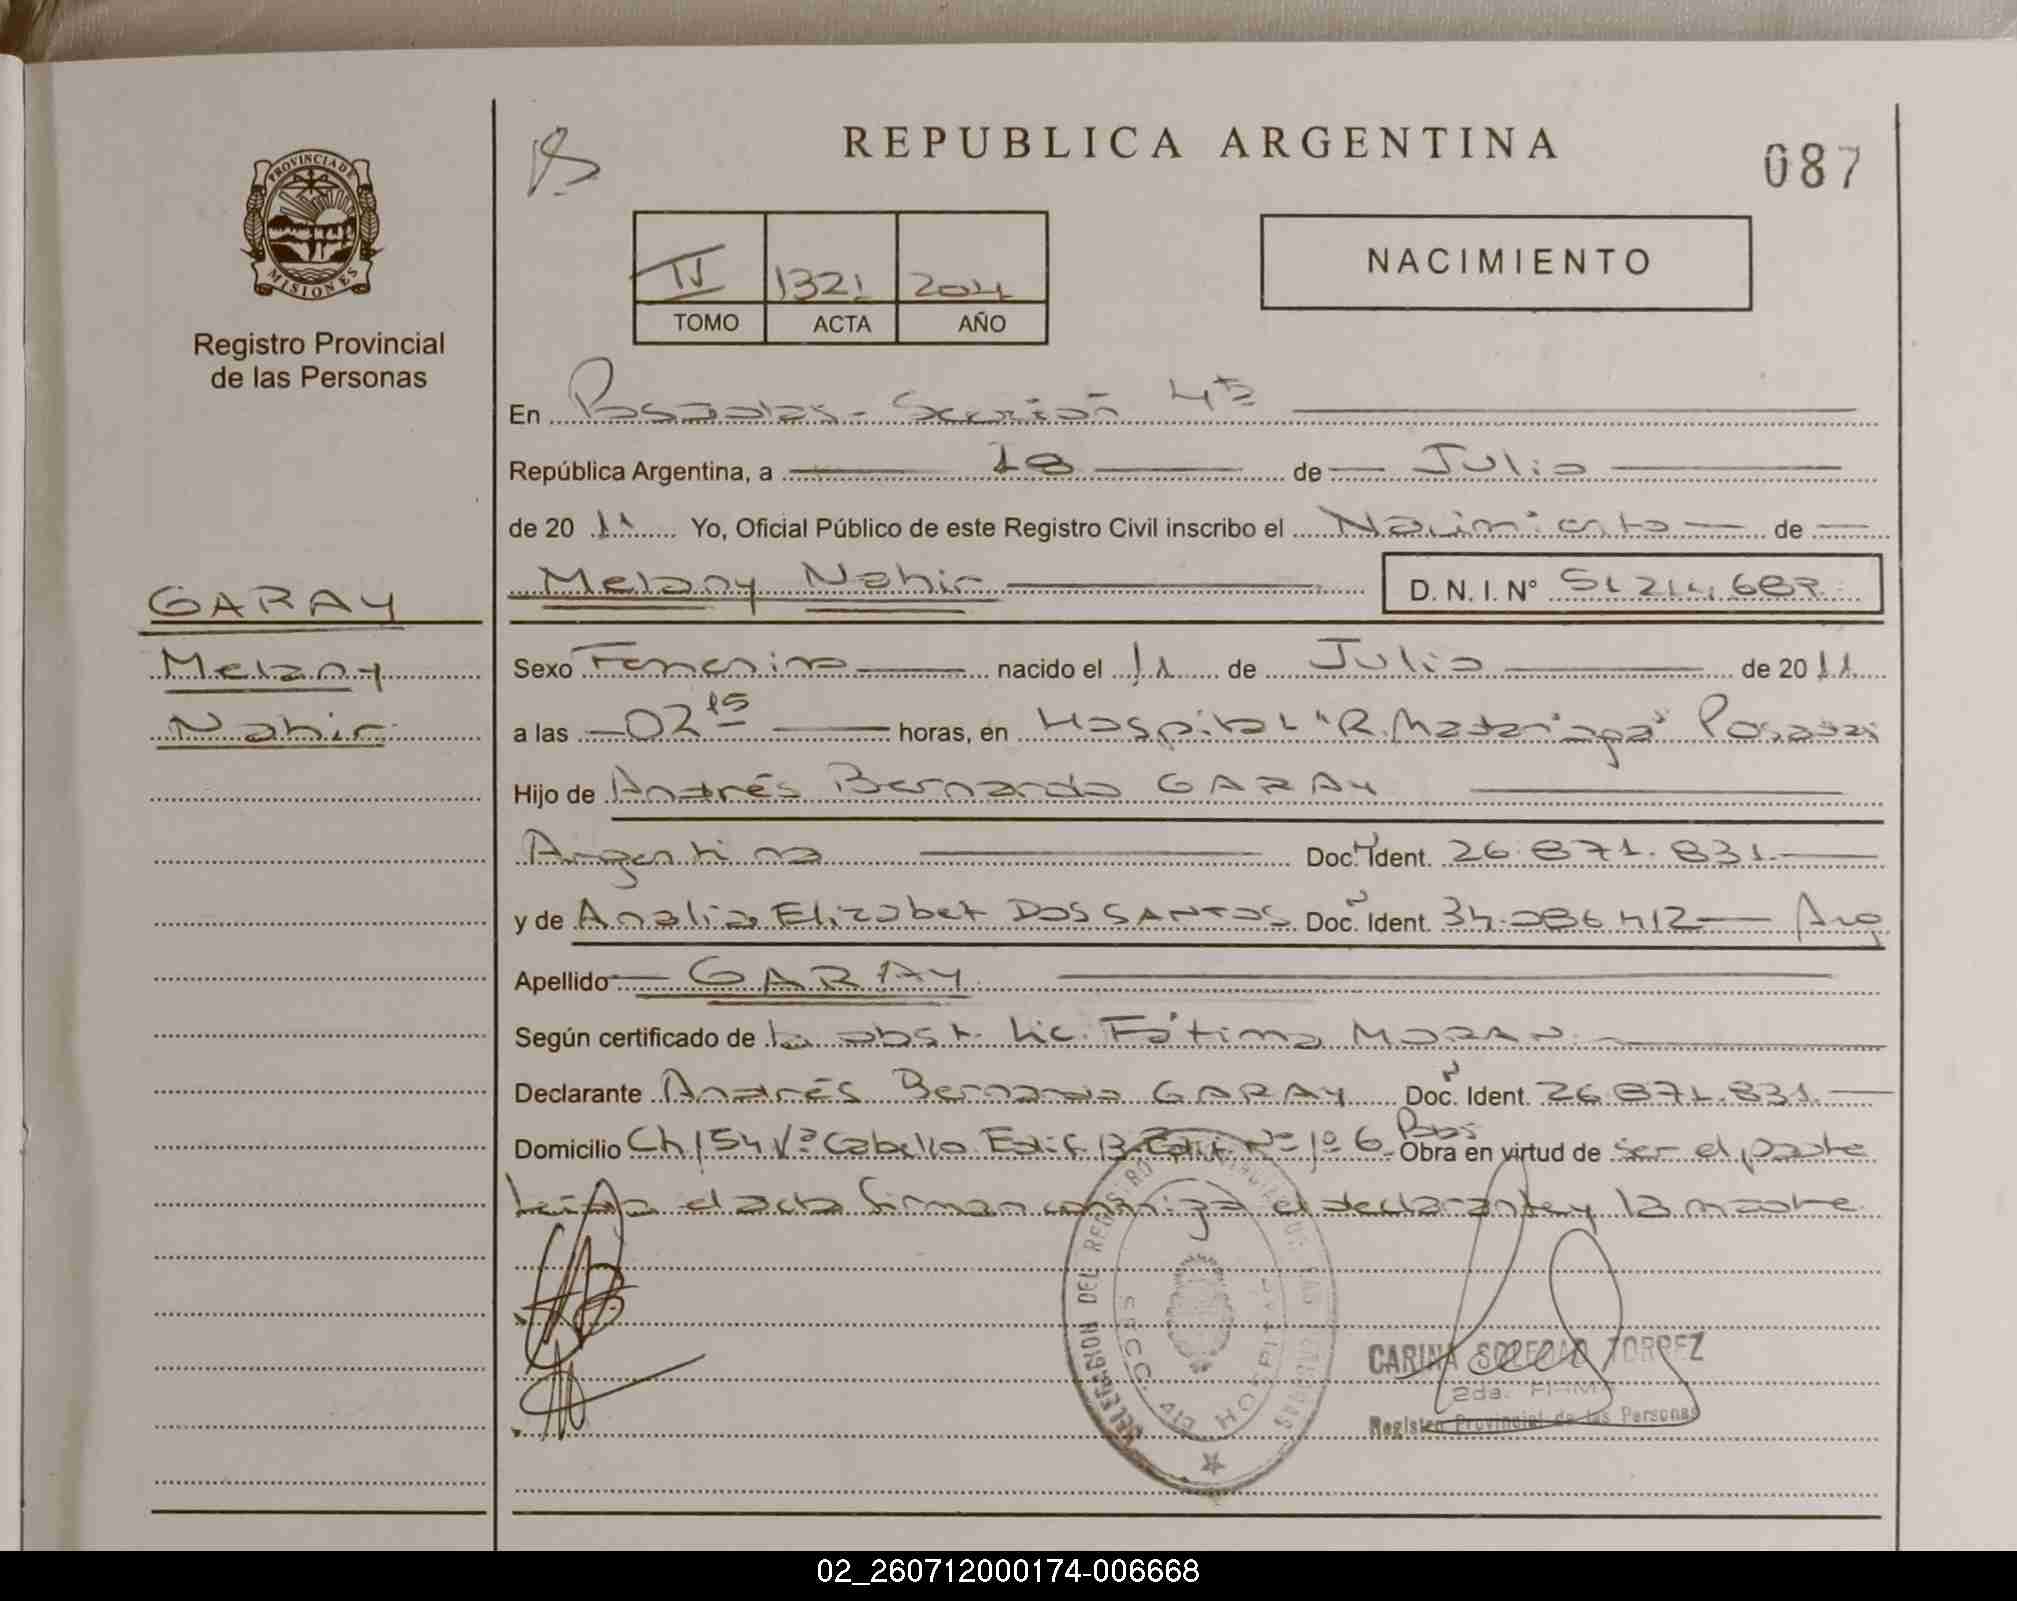 REPUBLICA ARGENTINA
087
PROVINCIA DE
MISIONES
Registro Provincial
de las Personas
NACIMIENTO
1321
TOMO ACTA AÑO
En Posadas - Sección 4ta
República Argentina, a 18 de Julio
de 20 11 Yo, Oficial Público de este Registro Civil inscribo el Nacimiento de
Melany Nahir D. N. I. Nº
GARAY
Melany
Nahir
Sexo Femenino nacido el 11 de Julio de 20 11
a las 02 15 horas, en Hospital "R. Madariaga" Posadas
Hijo de Andrés Bernardo GARAY
Argentina Doc. Ident. 26.871.831
y de Analia Elizabet DOS SANTOS Doc. Ident. 34.086.412 Arg
Apellido GARAY
Según certificado de la obst. Lic. Fátima MORAN
Declarante Andrés Bernardo GARAY Doc. Ident. 26.871.831
Domicilio Ch 154 Vª Cabello Edif. 13 Nº 1º 6 Pdas Obra en virtud de ser el padre
Leída el acta firman conmigo el declarante y la madre
DELEGACION DEL REGISTRO
SECC. 4ta HOSPITAL
CARINA SOLEDAD TORREZ
2da. FIRMA
Registro Provincial de las Personas
02_260712000174-006668